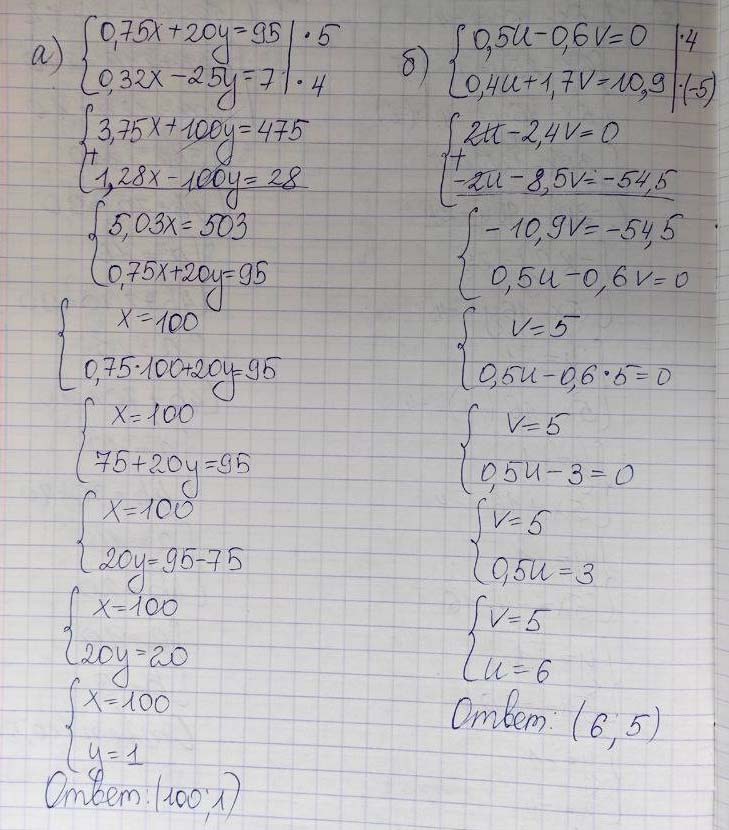 а) 0,75x+20y=95 | ·5
0,32x−25y=7 | ·4
3,75x+100y=475
+
1,28x−100y=28
5,03x=503
0,75x+20y=95
x=100
0,75·100+20y=95
x=100
75+20y=95
x=100
20y=95−75
x=100
20y=20
x=100
y=1
Ответ: (100;1)
б) 0,5u−0,6v=0 | ·4
0,4u+1,7v=10,9 | ·(−5)
2u−2,4v=0
+
−2u−8,5v=−54,5
−10,9v=−54,5
0,5u−0,6v=0
v=5
0,5u−0,6·5=0
v=5
0,5u−3=0
v=5
0,5u=3
v=5
u=6
Ответ: (6;5)